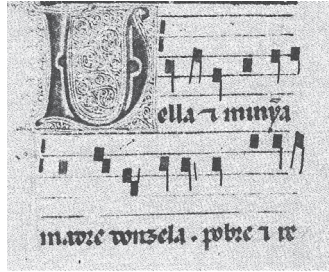 Uella ⁊ minỹa
madre donzela . pobre ⁊ re